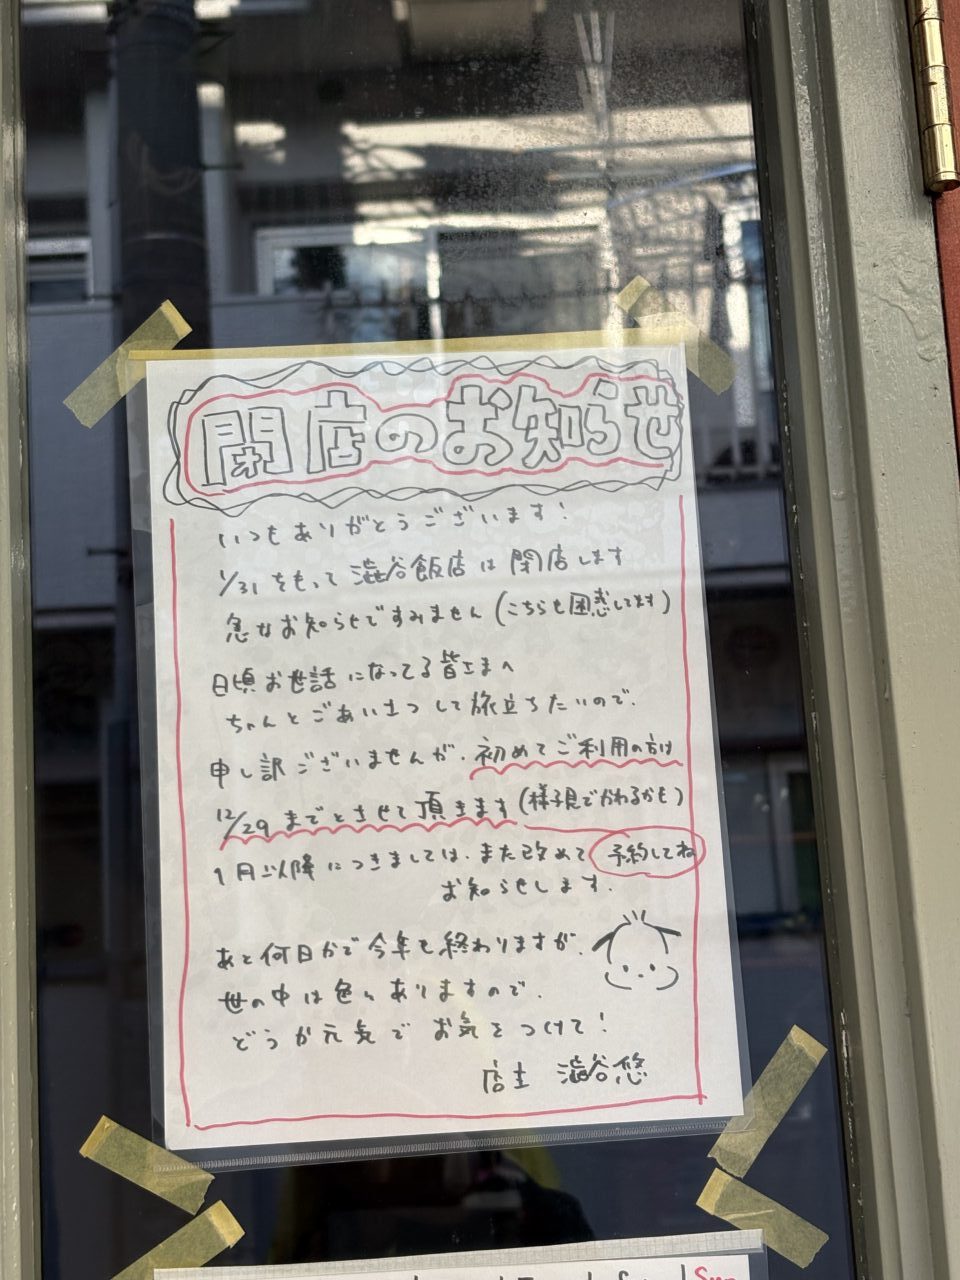 閉店のお知らせ
いつもありがとうございます!
1/31をもって澁谷飯店は閉店します
急なお知らせですみません(こちらも困惑してます)
日頃お世話になってる皆さまへ
ちゃんとごあいさつして旅立ちたいので、
申し訳ございませんが、初めてご利用の方は
12/29までとさせて頂きます(様子見でかわるかも)
1月以降につきましては、また改めて 予約してね
お知らせします。
あと何日かで今年も終わりますが、
世の中は色々ありますので、
どうか元気でお気をつけて!
店主 澁谷悠